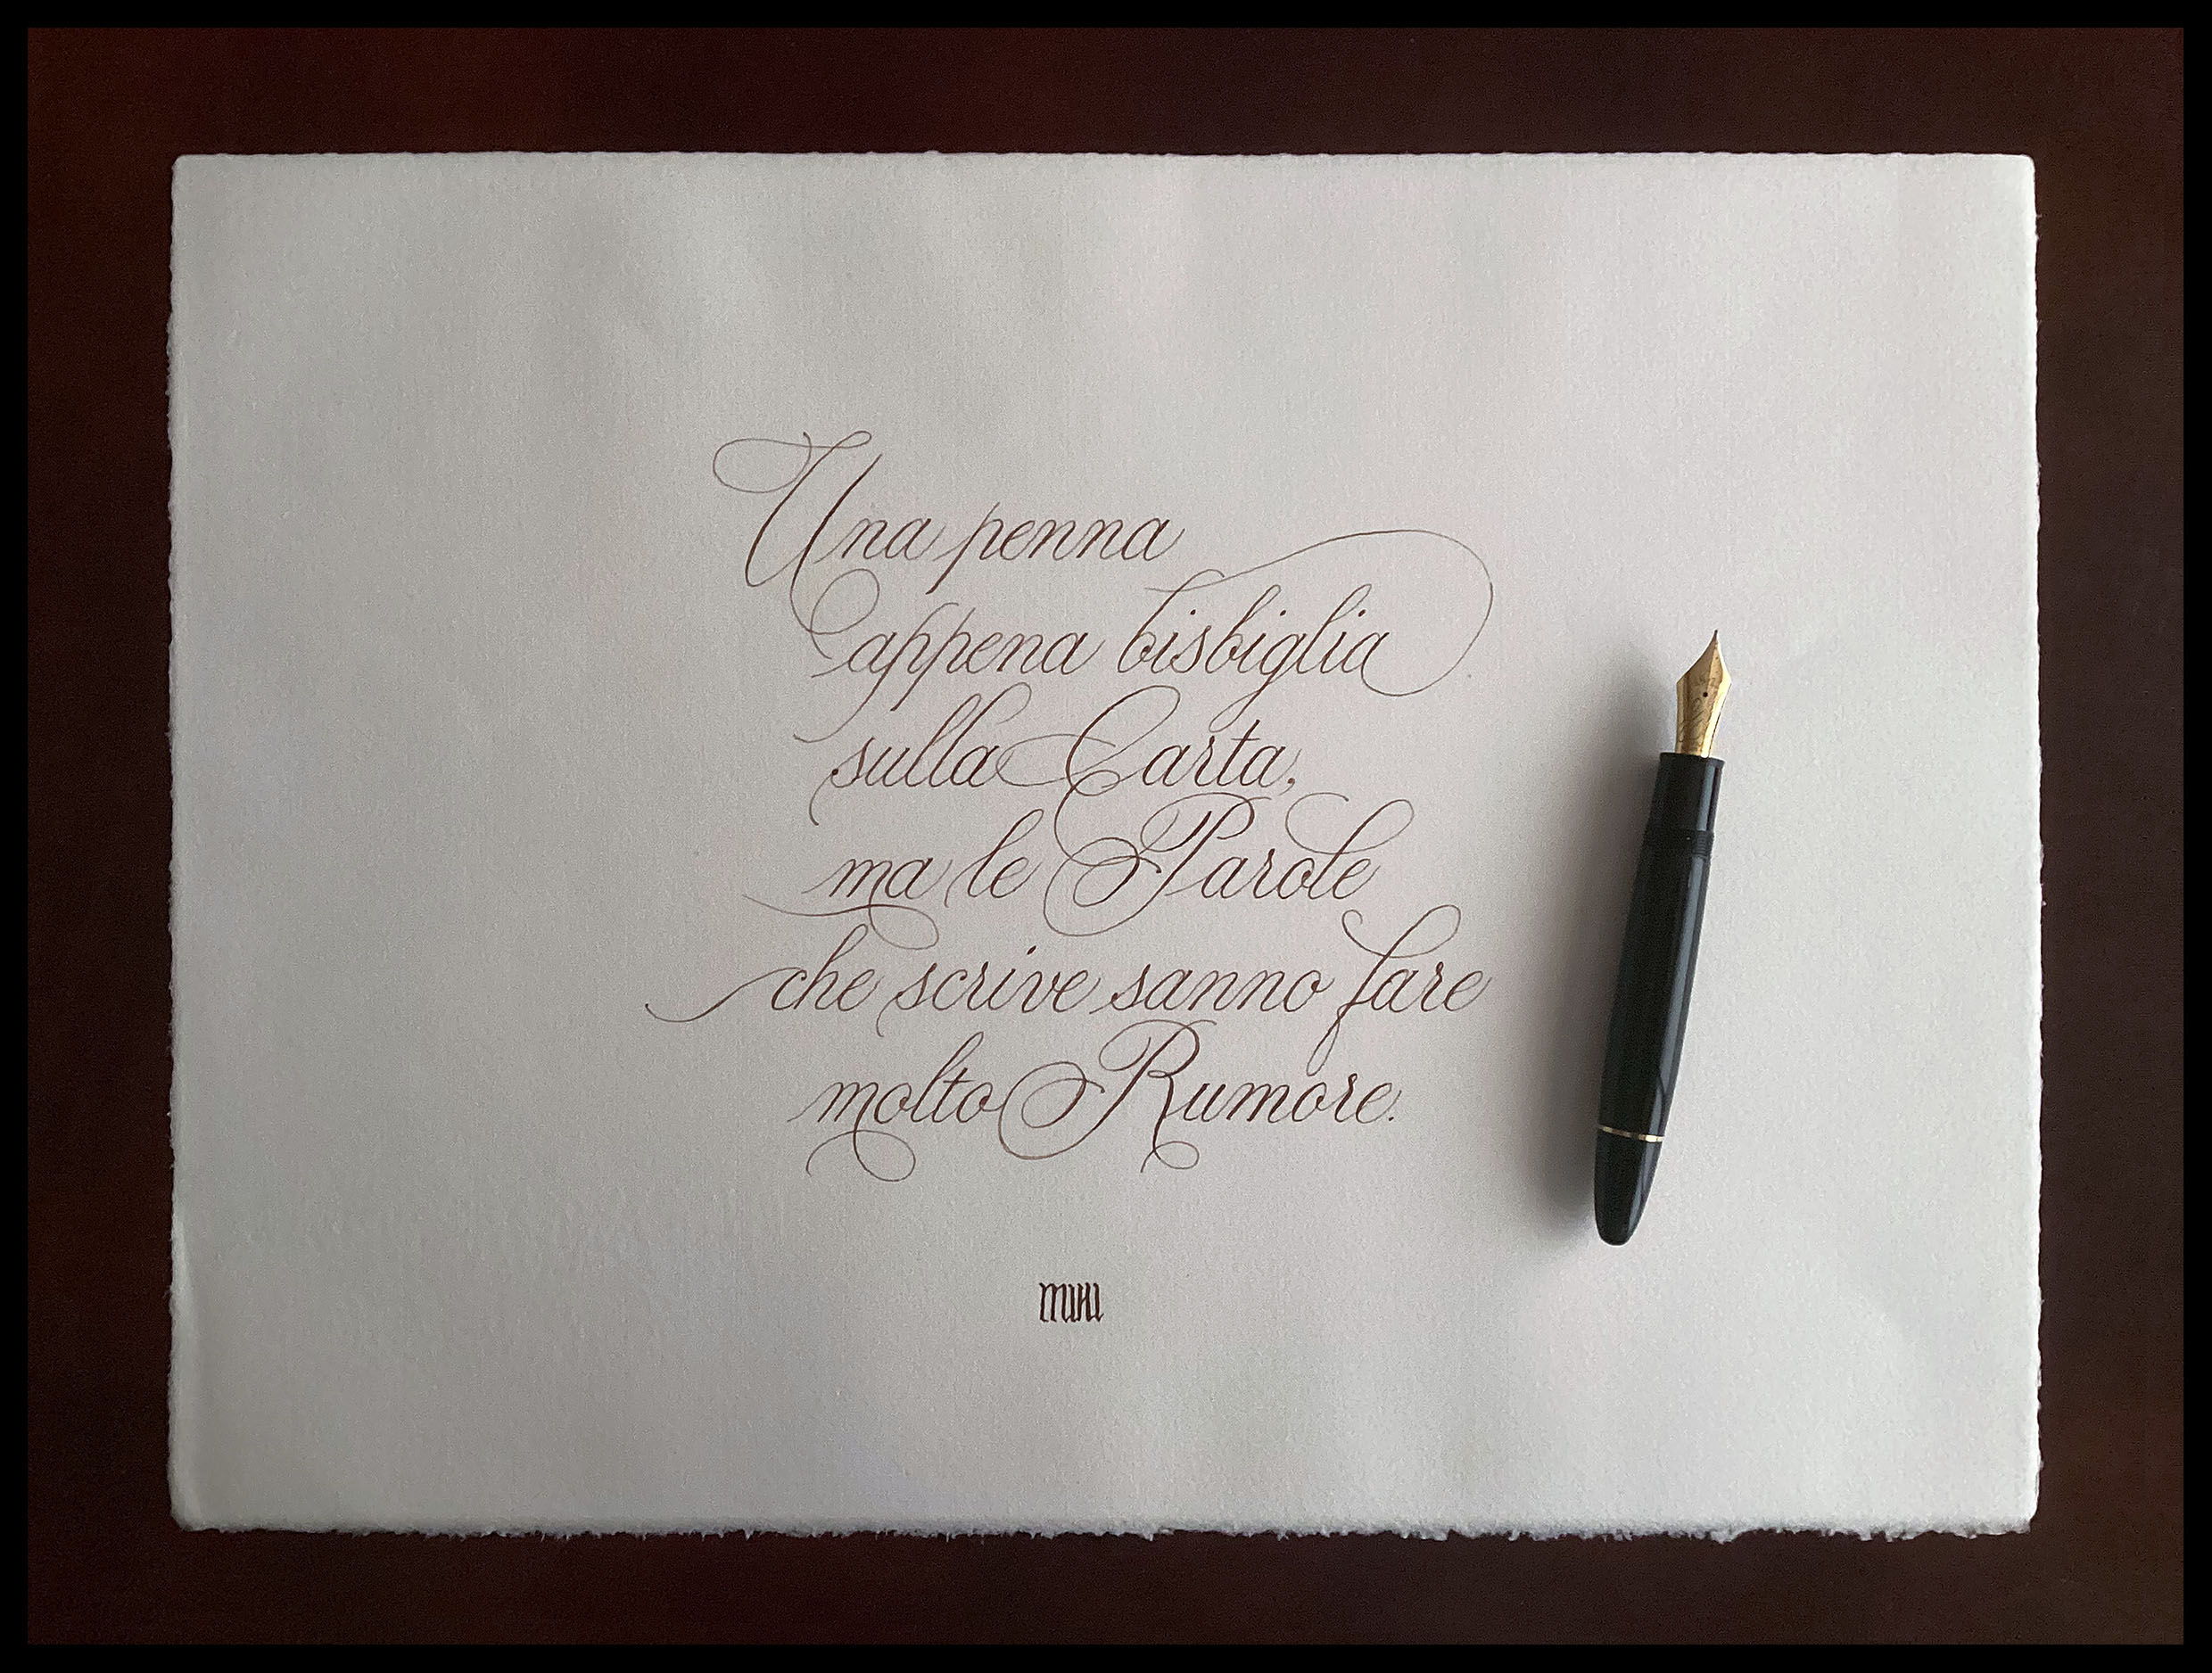 Una penna
appena bisbiglia
sulla Carta,
ma le Parole
che scrive sanno fare
molto Rumore.